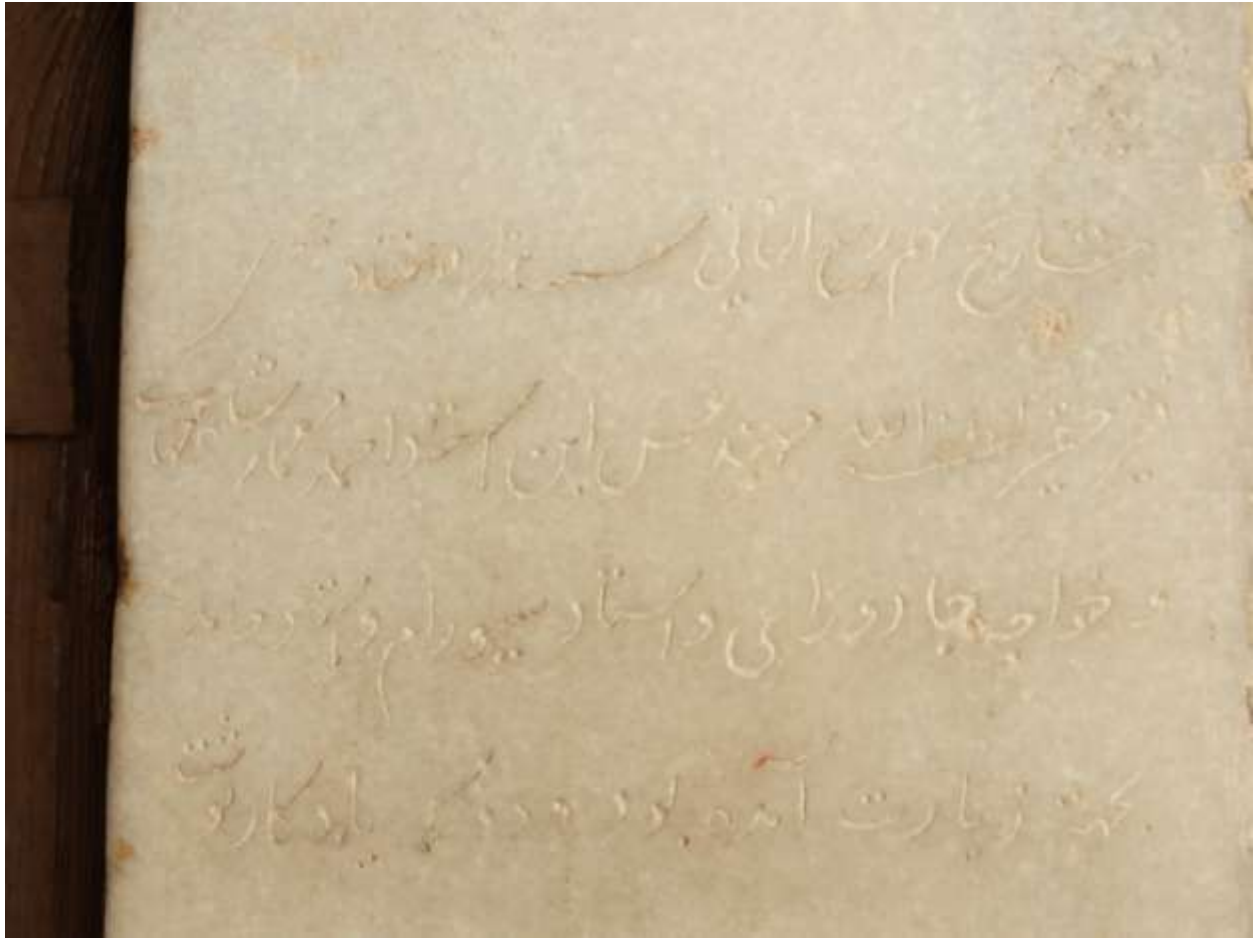 بتاریخ نهم ربیع الثانی سنه هزار هفتاد
فقیر حقیر لطف الله مهندس ابن استاد احمد معمار شاهجهانی
و خواجه جادورای و استاد سیورام و استاد
بجهت زیارت آمده بودند دو کلمه یادگار نوشت